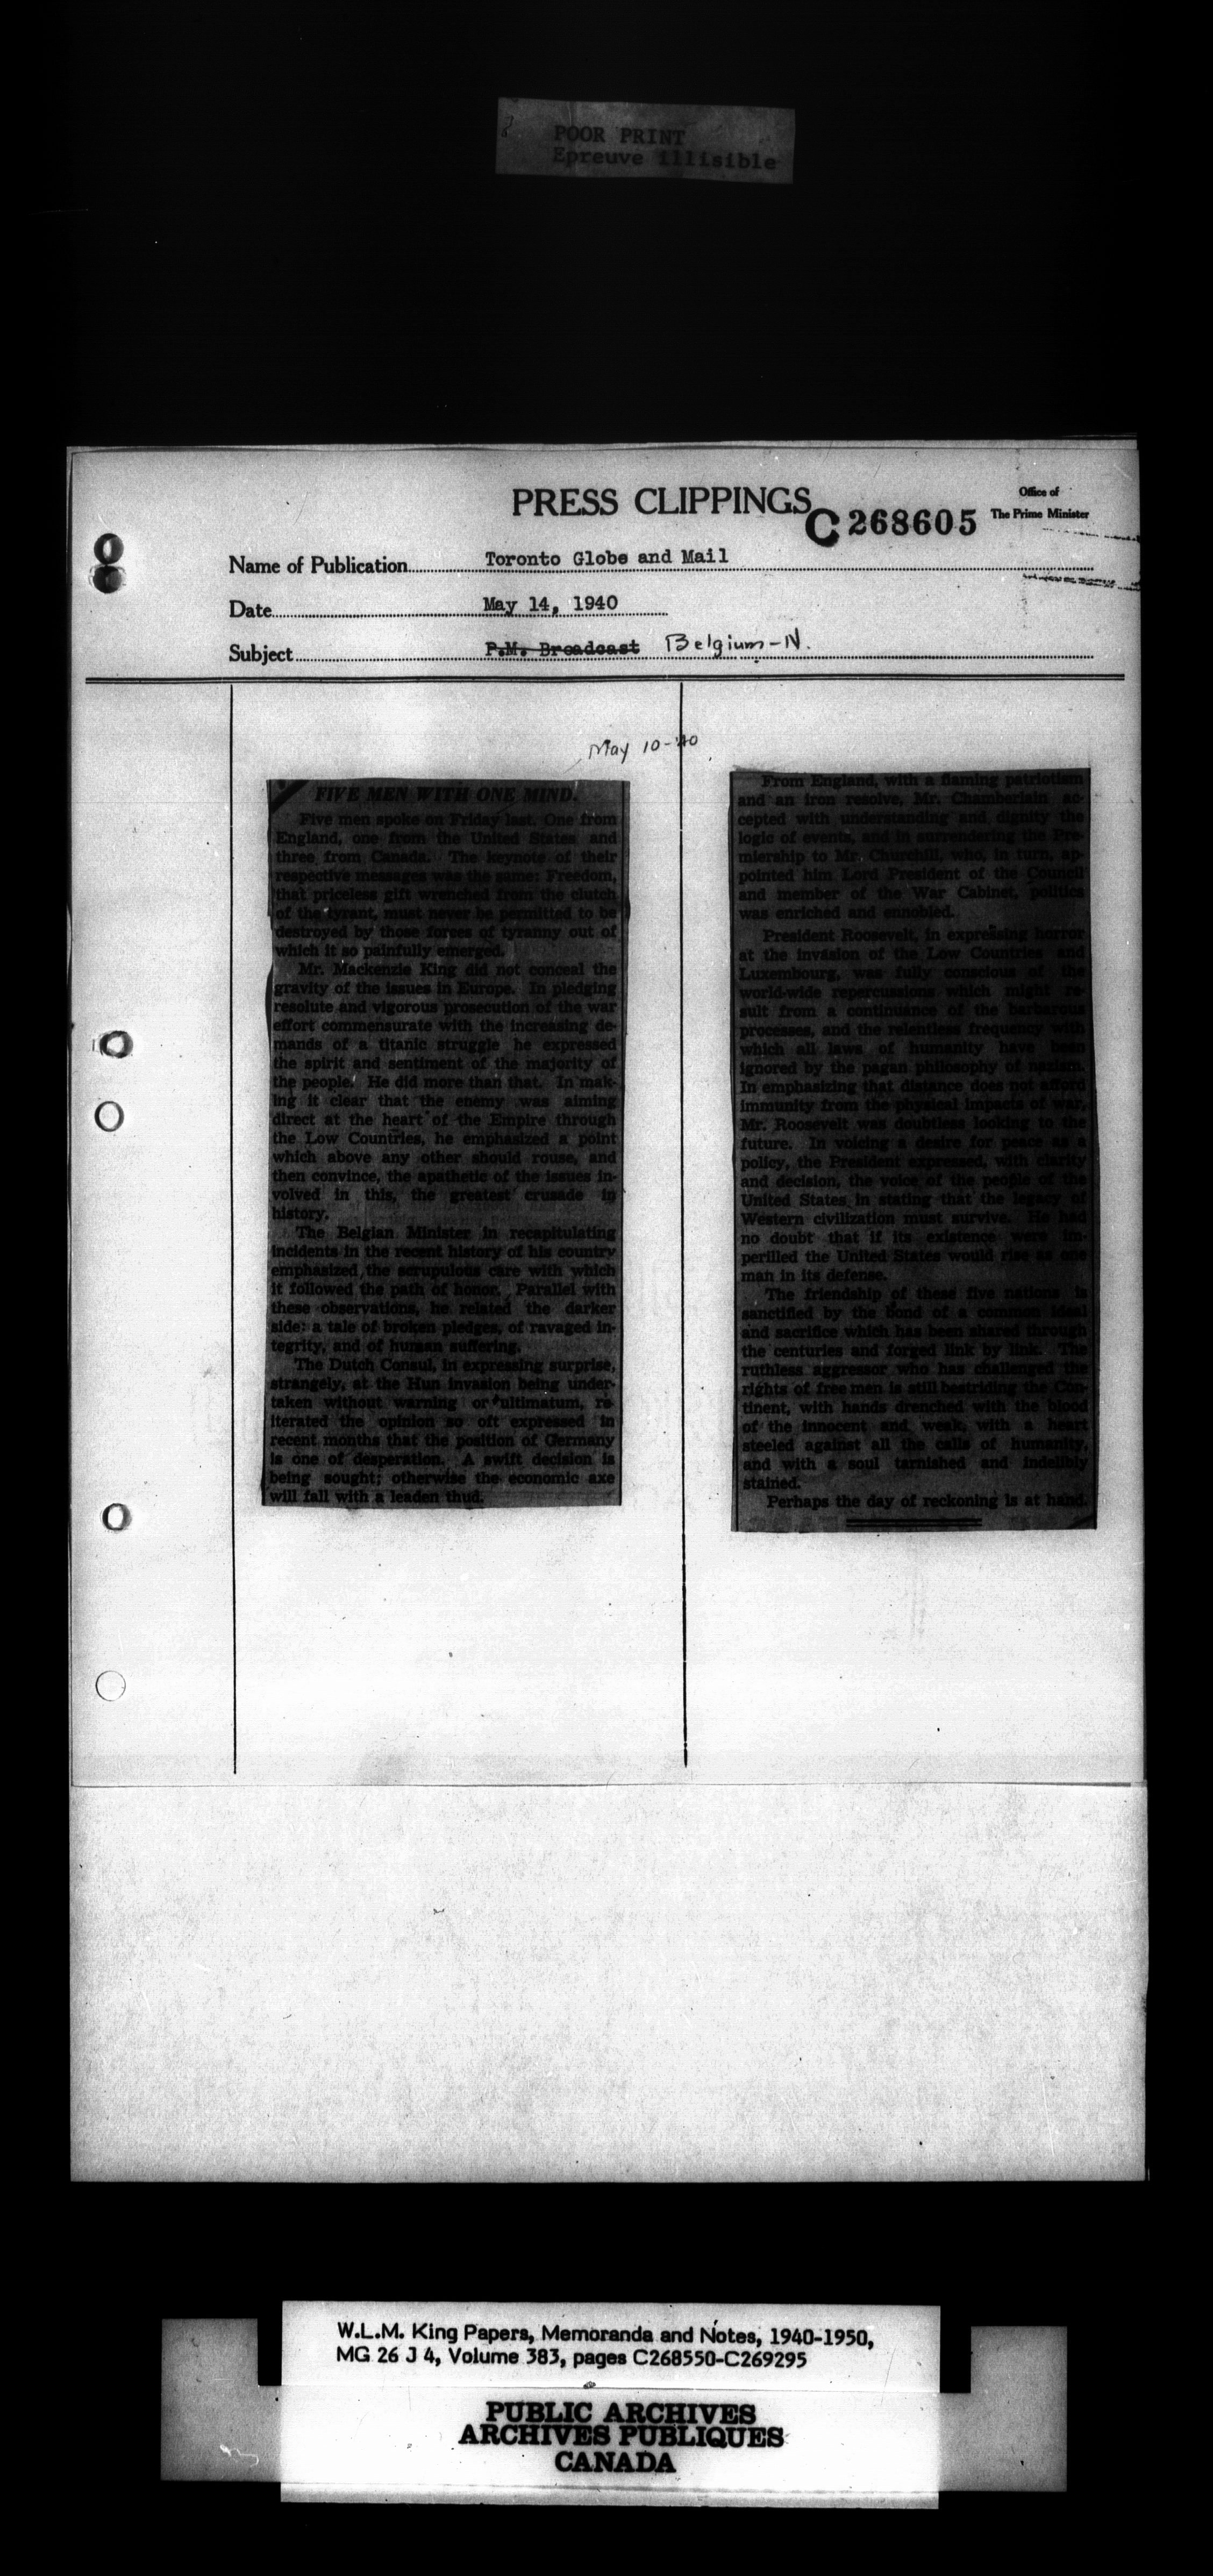 POOR PRINT
Epreuve illisible
PRESS CLIPPINGS
C268605
Office of
The Prime Minister
Name of Publication Toronto Globe and Mail
Date May 14, 1940
Subject P.M. Broadcast Belgium-N.
May 10-'40
FIVE MEN WITH ONE MIND.
Five men spoke on Friday last. One from
England, one from the United States and
three from Canada. The keynote of their
respective messages was the same: Freedom,
that priceless gift wrenched from the clutch
of the tyrant, must never be permitted to be
destroyed by those forces of tyranny out of
which it so painfully emerged.
Mr. Mackenzie King did not conceal the
gravity of the issues in Europe. In pledging
resolute and vigorous prosecution of the war
effort commensurate with the increasing de-
mands of a titanic struggle he expressed
the spirit and sentiment of the majority of
the people. He did more than that. In mak-
ing it clear that the enemy was aiming
direct at the heart of the Empire through
the Low Countries, he emphasized a point
which above any other should rouse, and
then convince, the apathetic of the issues in-
volved in this, the greatest crusade in
history.
The Belgian Minister in recapitulating
incidents in the recent history of his country
emphasized the scrupulous care with which
it followed the path of honor. Parallel with
these observations, he related the darker
side: a tale of broken pledges, of ravaged in-
tegrity, and of human suffering.
The Dutch Consul, in expressing surprise,
strangely, at the Hun invasion being under-
taken without warning or ultimatum, re-
iterated the opinion so oft expressed in
recent months that the position of Germany
is one of desperation. A swift decision is
being sought; otherwise the economic axe
will fall with a leaden thud.
From England, with a flaming patriotism
and an iron resolve, Mr. Chamberlain ac-
cepted with understanding and dignity the
logic of events, and in surrendering the Pre-
miership to Mr. Churchill, who, in turn, ap-
pointed him Lord President of the Council
and member of the War Cabinet, politics
was enriched and ennobled.
President Roosevelt, in expressing horror
at the invasion of the Low Countries and
Luxembourg, was fully conscious of the
world-wide repercussions which might re-
sult from a continuance of the barbarous
processes, and the relentless frequency with
which all laws of humanity have been
ignored by the pagan philosophy of nazism.
In emphasizing that distance does not afford
immunity from the physical impacts of war,
Mr. Roosevelt was doubtless looking to the
future. In voicing a desire for peace as a
policy, the President expressed, with clarity
and decision, the voice of the people of the
United States in stating that the legacy of
Western civilization must survive. He had
no doubt that if its existence were im-
perilled the United States would rise as one
man in its defense.
The friendship of these five nations is
sanctified by the bond of a common ideal
and sacrifice which has been shared through
the centuries and forged link by link. The
ruthless aggressor who has challenged the
rights of free men is still bestriding the Con-
tinent, with hands drenched with the blood
of the innocent and weak, with a heart
steeled against all the calls of humanity,
and with a soul tarnished and indelibly
stained.
Perhaps the day of reckoning is at hand.
W.L.M. King Papers, Memoranda and Notes, 1940-1950,
MG 26 J 4, Volume 383, pages C268550-C269295
PUBLIC ARCHIVES
ARCHIVES PUBLIQUES
CANADA